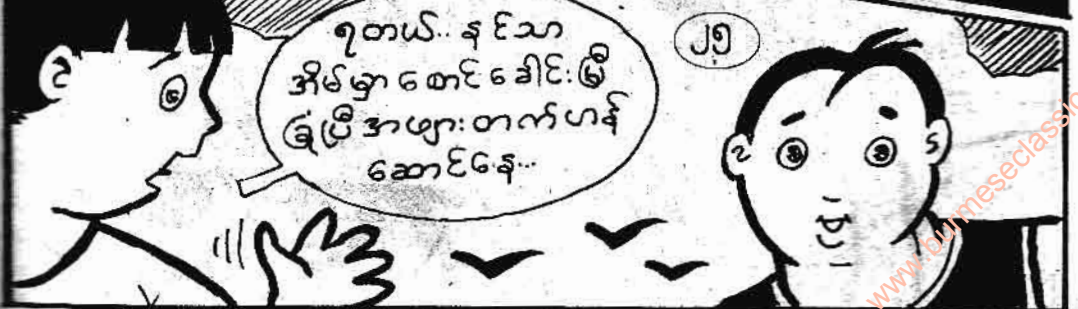 ရတယ်.. နင်သာ
အိမ်မှာ စောင်ခေါင်းမြီး
ခြုံပြီး အဖျားတက်ဟန်
ဆောင်နေ...
၂၅
www.burmeseclassic